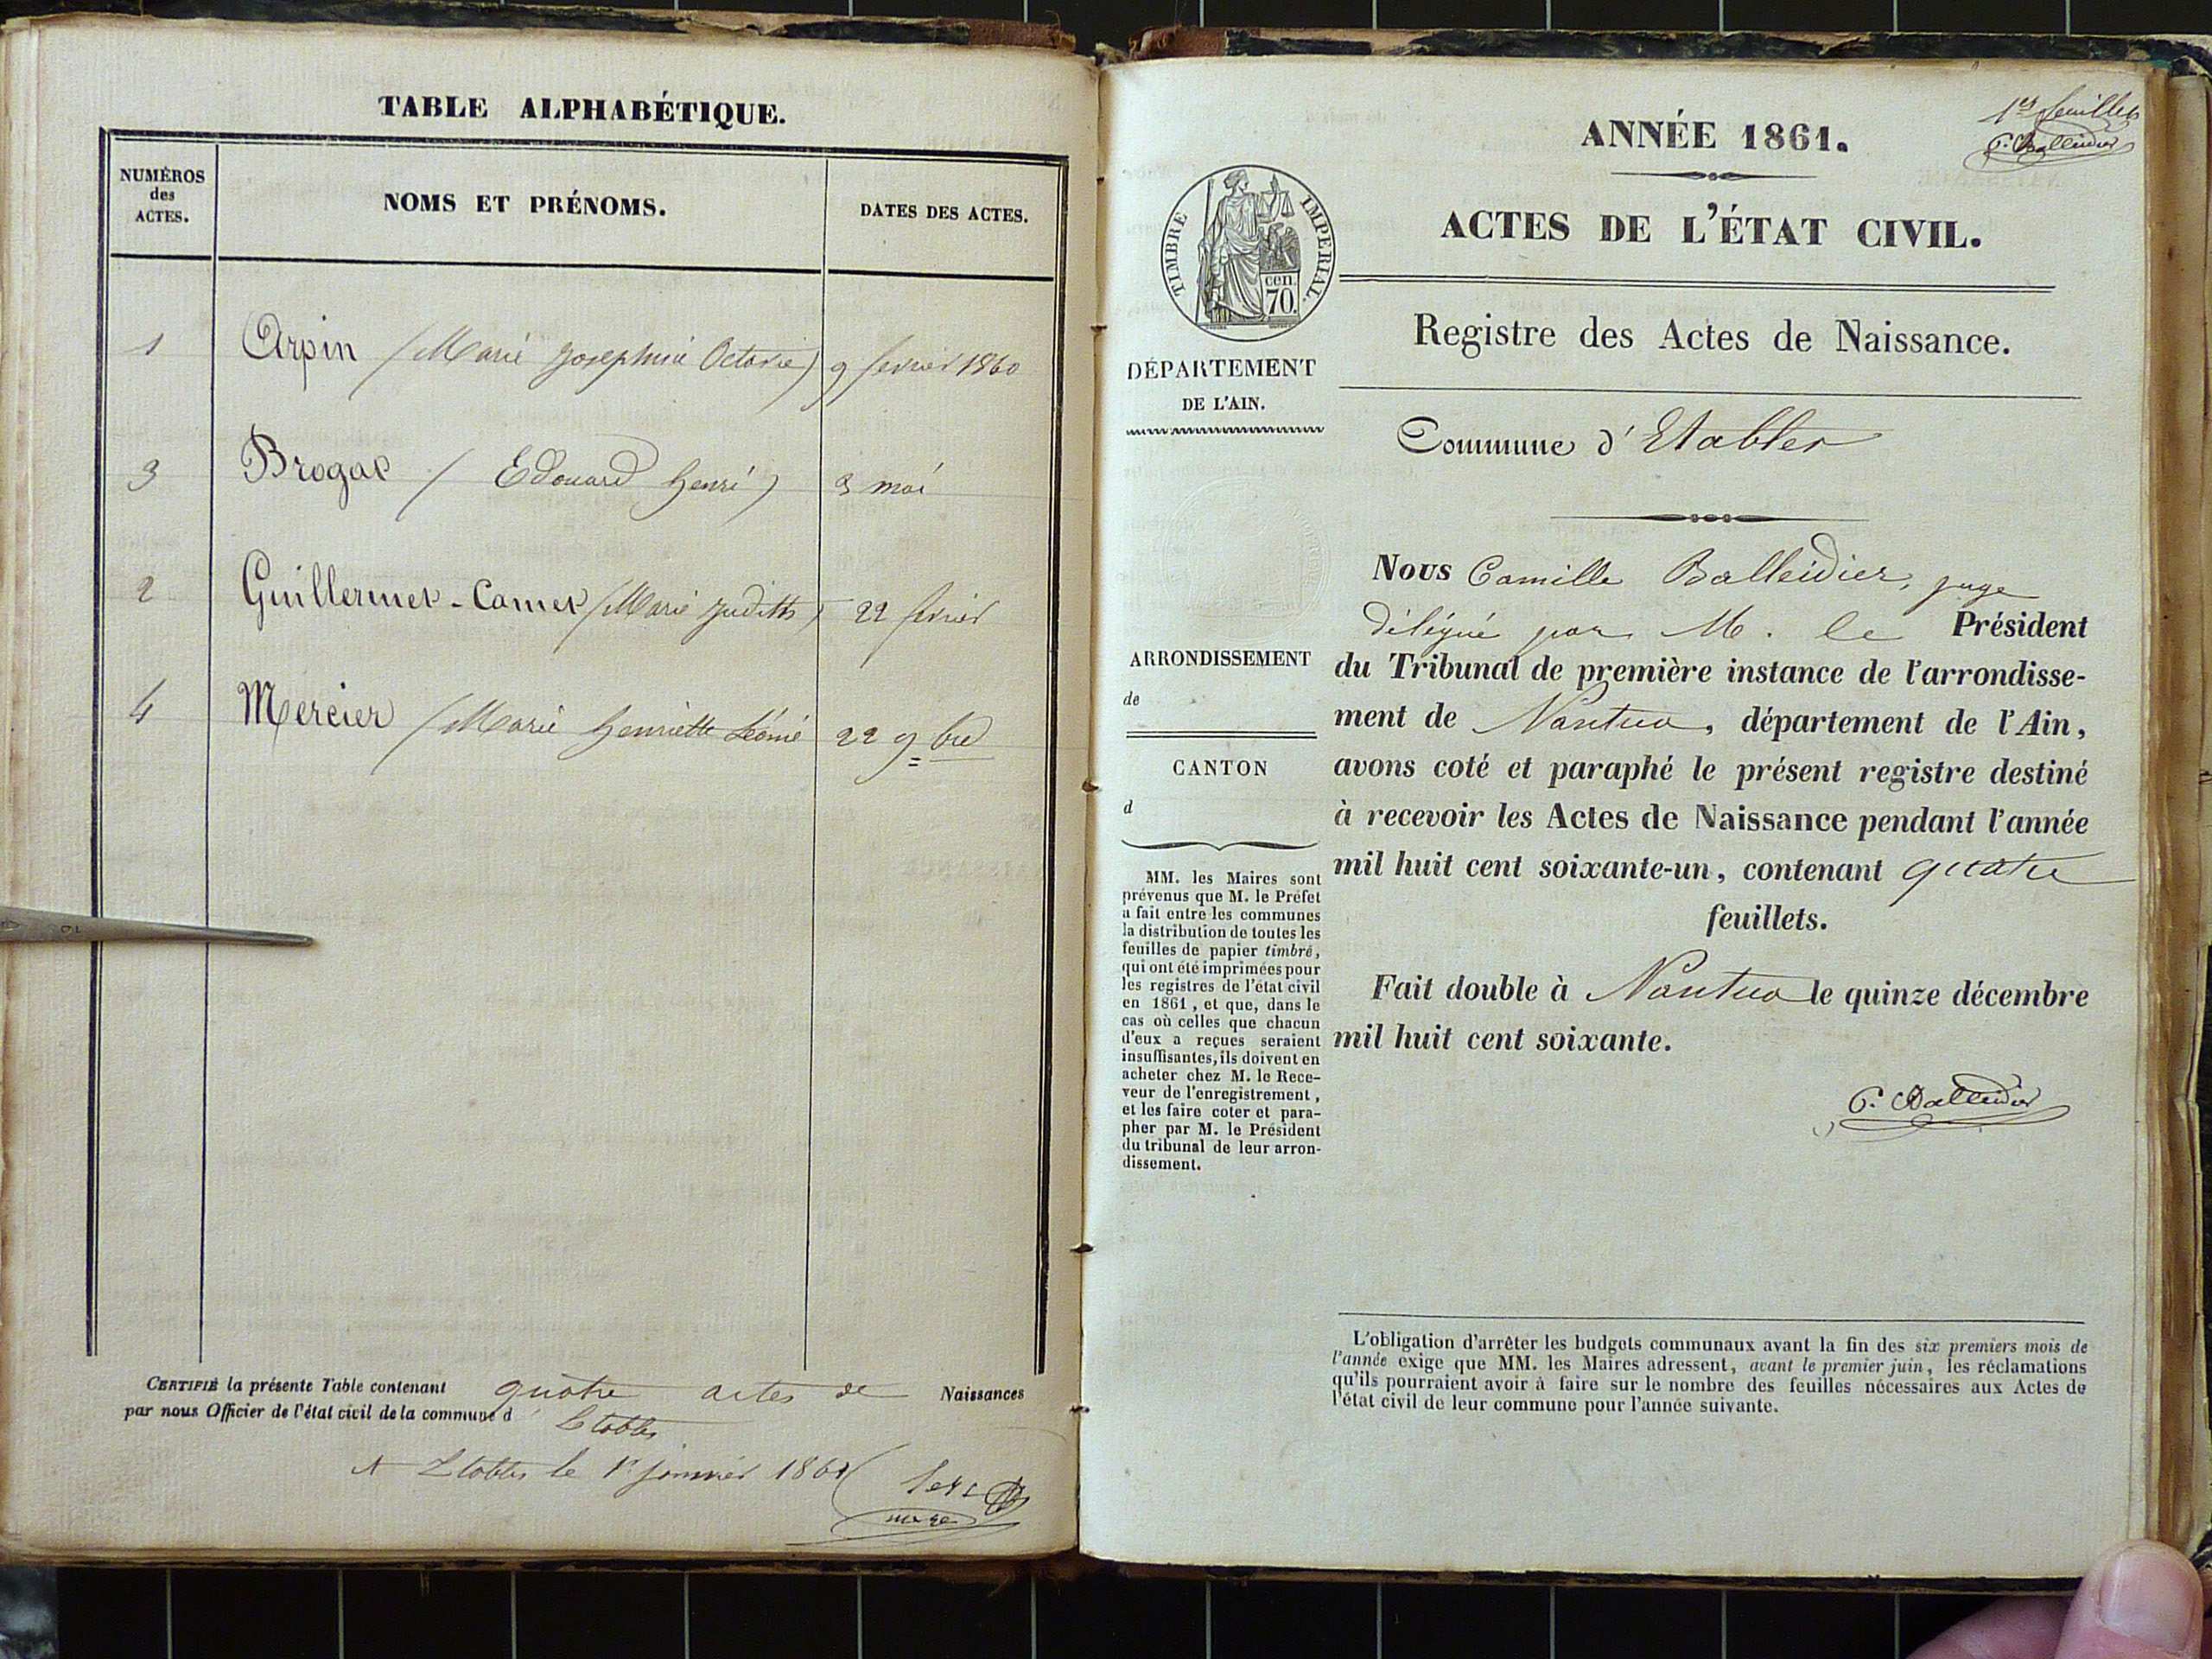 TABLE ALPHABÉTIQUE.
NUMÉROS
des
ACTES.
NOMS ET PRÉNOMS.
DATES DES ACTES.
1 Arpin (Marie Josephine Octavie) 9 fevrier 1860
3 Brogat (Edouard henri) 3 mai
2 Guillermet-Camet (Marie Judith) 22 fevrier
4 Mercier (Marie henriette Léonie 22 9bre
CERTIFIÉ la présente Table contenant quatre actes de Naissances
par nous Officier de l'état civil de la commune d Etables
A Etables le 1er janvier 1861
maire
1er feuillet
C. Balleidier
ANNÉE 1861.
ACTES DE L'ÉTAT CIVIL.
TIMBRE IMPÉRIAL.
cen.
70.
Registre des Actes de Naissance.
DÉPARTEMENT
DE L'AIN.
Commune d'Etables
Nous Camille Balleidier, juge
délégué par M. le Président
du Tribunal de première instance de l'arrondisse-
ment de Nantua, département de l'Ain,
avons coté et paraphé le présent registre destiné
à recevoir les Actes de Naissance pendant l'année
mil huit cent soixante-un, contenant quatre
feuillets.
Fait double à Nantua le quinze décembre
mil huit cent soixante.
C. Balleidier
ARRONDISSEMENT
de
CANTON
d
MM. les Maires sont
prévenus que M. le Préfet
a fait entre les communes
la distribution de toutes les
feuilles de papier timbré,
qui ont été imprimées pour
les registres de l'état civil
en 1861, et que, dans le
cas où celles que chacun
d'eux a reçues seraient
insuffisantes, ils doivent en
acheter chez M. le Rece-
veur de l'enregistrement,
et les faire coter et para-
pher par M. le Président
du tribunal de leur arron-
dissement.
L'obligation d'arrêter les budgets communaux avant la fin des six premiers mois de
l'année exige que MM. les Maires adressent, avant le premier juin, les réclamations
qu'ils pourraient avoir à faire sur le nombre des feuilles nécessaires aux Actes de
l'état civil de leur commune pour l'année suivante.